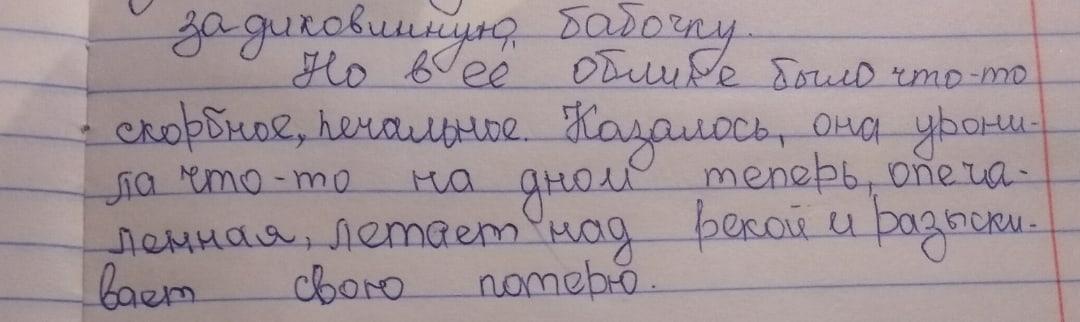 за диковинную бабочку.
Но в её облике было что-то
скорбное, печальное. Казалось, она урони-
ла что-то на дно и теперь, опеча-
ленная, летает над рекой и разыски-
вает свою потерю.